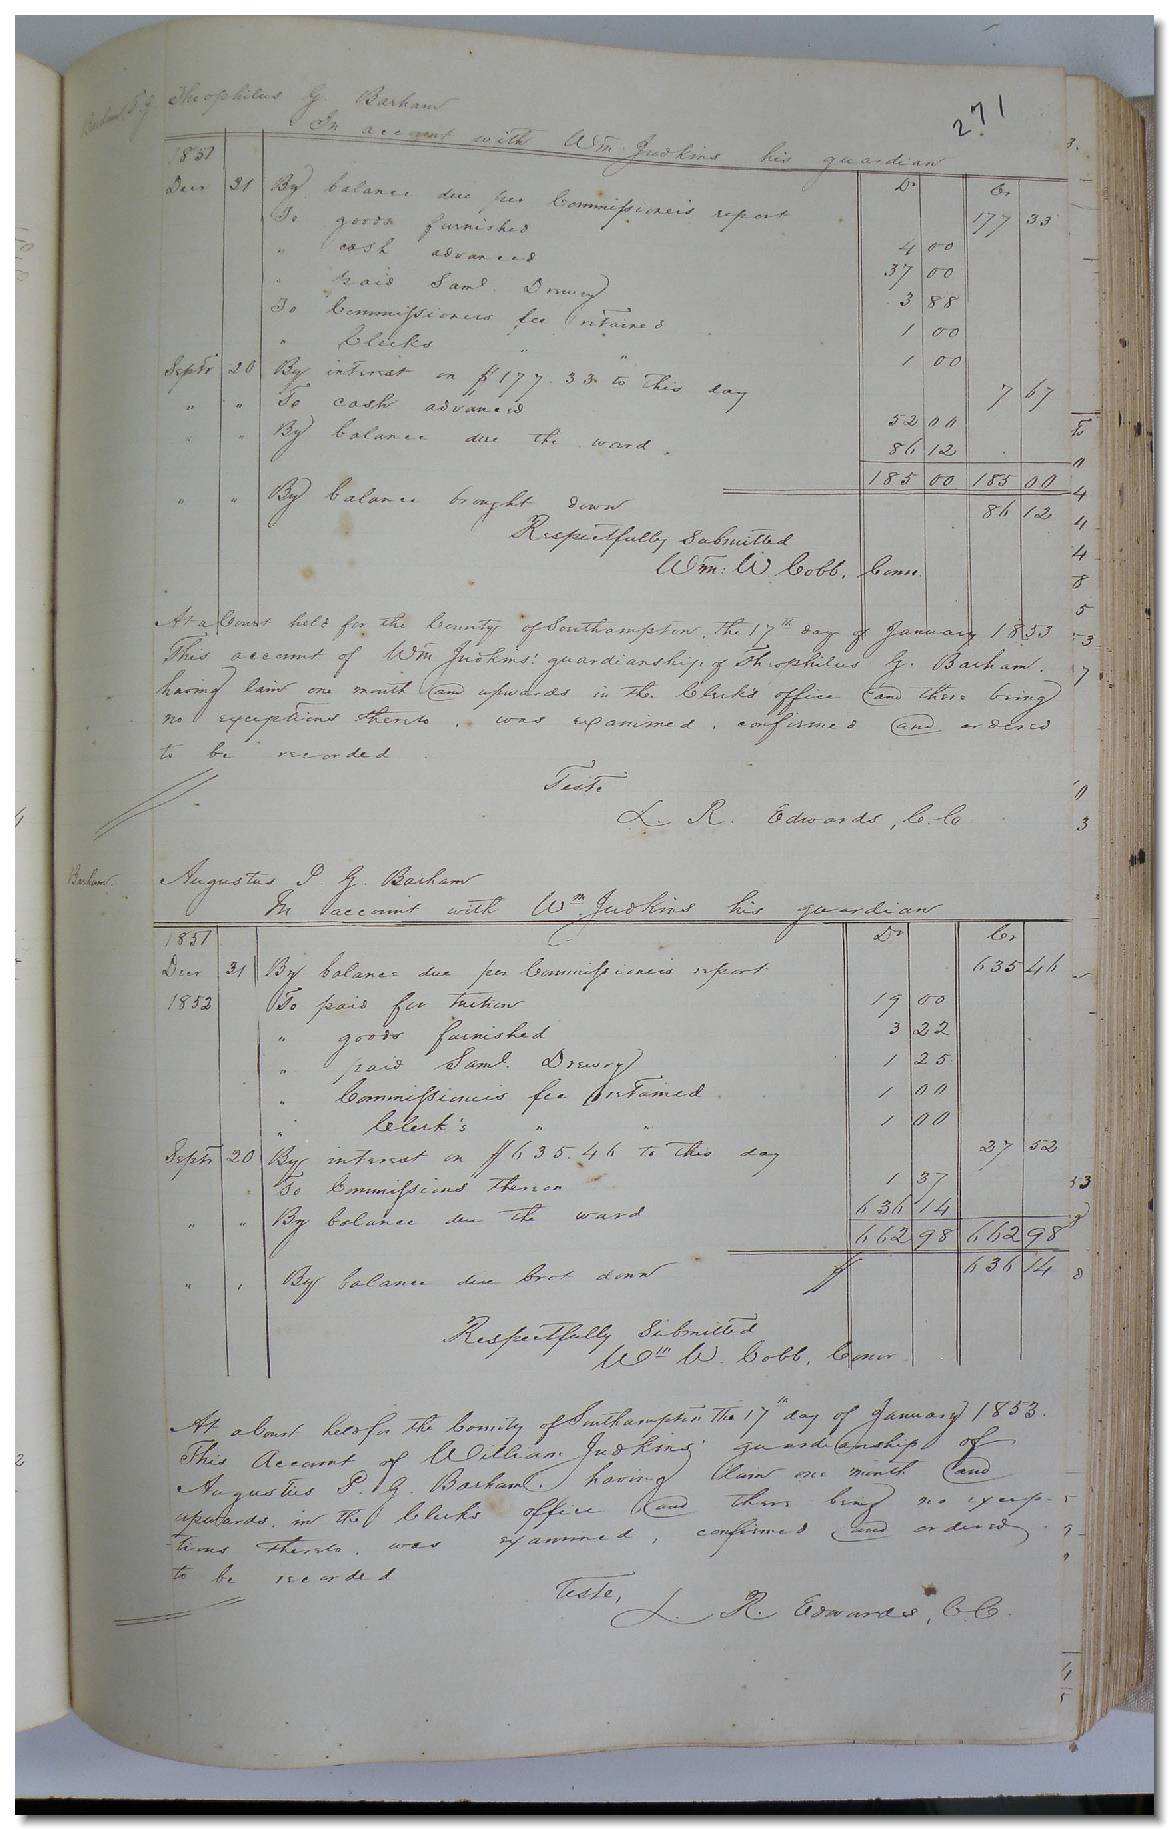 271
Barham T. G.
Theophilus G. Barham
In account with Wm. Judkins his guardian
1851 Dr Cr
Decr 31 By balance due per Commissioneis report 177 33
To goods furnished 4 00
" cash advanced 37 00
" paid Saml. Drewry 3 88
To Commissioners fee retained 1 00
" Clerks " " 1 00
Septr 20 By interest on $177.33 to this day 7 67
" " To cash advanced 52 00
" " By balance due the ward. 86 12
185 00 185 00
" " By balance brought down 86 12
Respectfully Submitted
Wm: W Cobb, Comr.
At a Court held for the County of Southampton, the 17th day of January 1853
This account of Wm Judkins' guardianship of Theophilus G. Barham.
having lain one month and upwards in the Clerk's office and there being
no exceptions thereto, was examined, confirmed and ordered
to be recorded
Teste
L. R. Edwards, C.C
Barham.
Augustus P G. Barham
In account with Wm Judkins his guardian
1851 Dr Cr
Decr 31 By balance due per Commissioneis report 635 46
1852 To paid for tuition 19 00
" goods furnished 3 22
" paid Saml. Drewry 1 25
" Commissioneis fee retained 1 00
" Clerk's " " 1 00
Septr 20 By interest on $635.46 to this day 27 52
To Commissions thereon 1 37
" " By balance due the ward 636 14
662 98 662 98
" " By balance due brot down $ 636 14
Respectfully Submitted
Wm W. Cobb, Comr
At a Court held for the County of Southampton the 17th day of January 1853.
This Account of William Judkins' guardianship of
Augustus P. G. Barham. having lain one month and
upwards in the Clerks office and there being no excep-
tions thereto, was examined, confirmed and ordered
to be recorded
Teste,
L. R. Edwards, C.C.